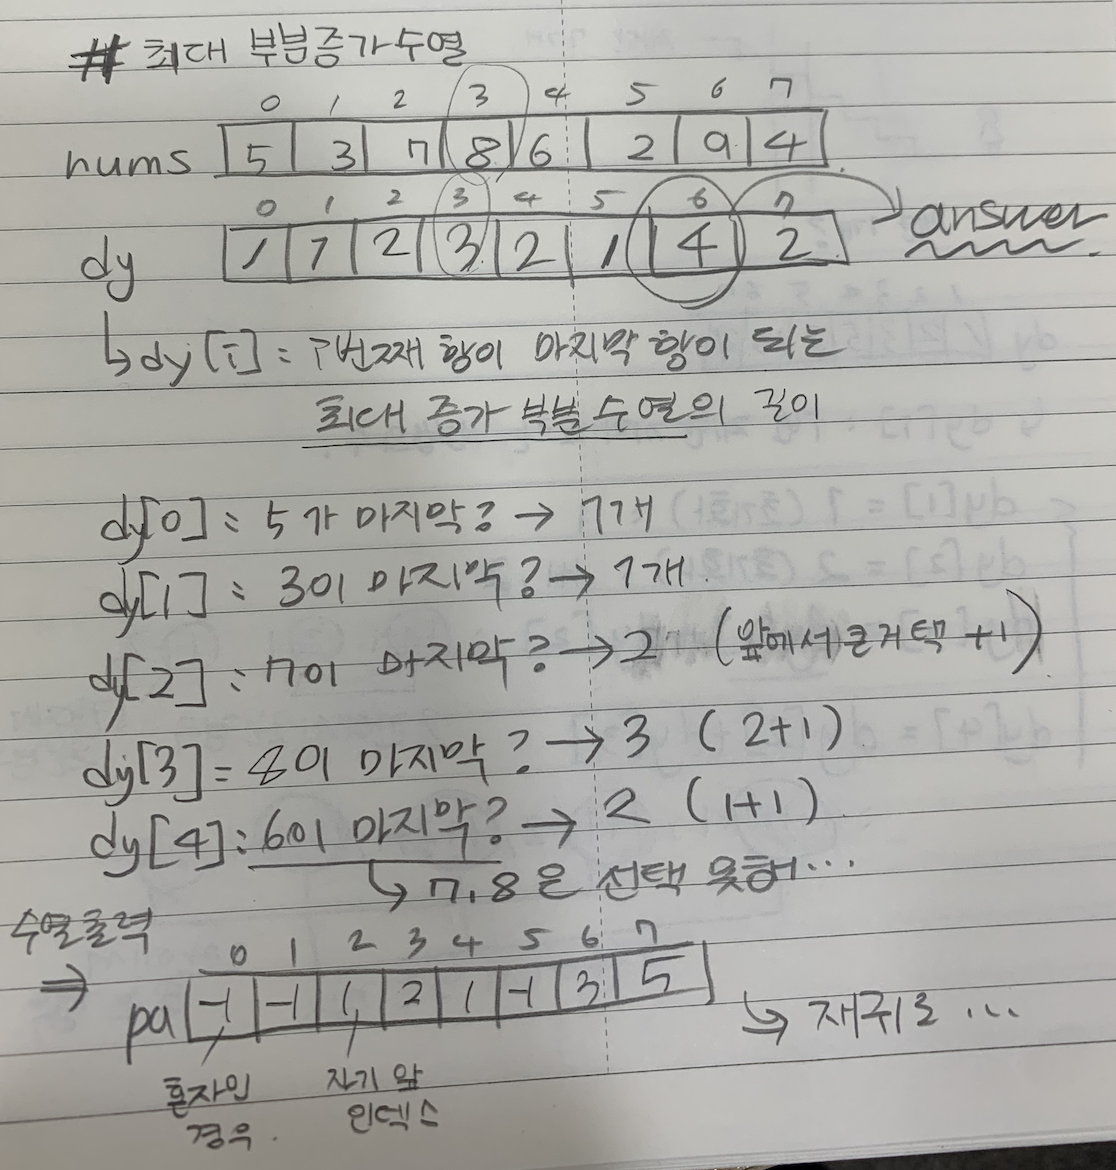 # 최대 부분증가수열
0 1 2 3 4 5 6 7
nums 5 3 7 8 6 2 9 4
0 1 2 3 4 5 6 7
dy 1 1 2 3 2 1 4 2 answer
↳ dy[i] : i번째 항이 마지막 항이 되는
최대 증가 부분 수열의 길이
dy[0] : 5가 마지막? → 1개
dy[1] : 3이 마지막? → 1개.
dy[2] : 7이 마지막? → 2 (앞에서 큰거 택 +1)
dy[3] = 8이 마지막? → 3 (2+1)
dy[4] : 6이 마지막? → 2 (1+1)
↳ 7, 8은 선택 못해...
수열출력
0 1 2 3 4 5 6 7
⇒ pa -1 -1 1 2 1 -1 3 5
↳ 재귀로 ...
혼자인 자기 앞
경우. 인덱스